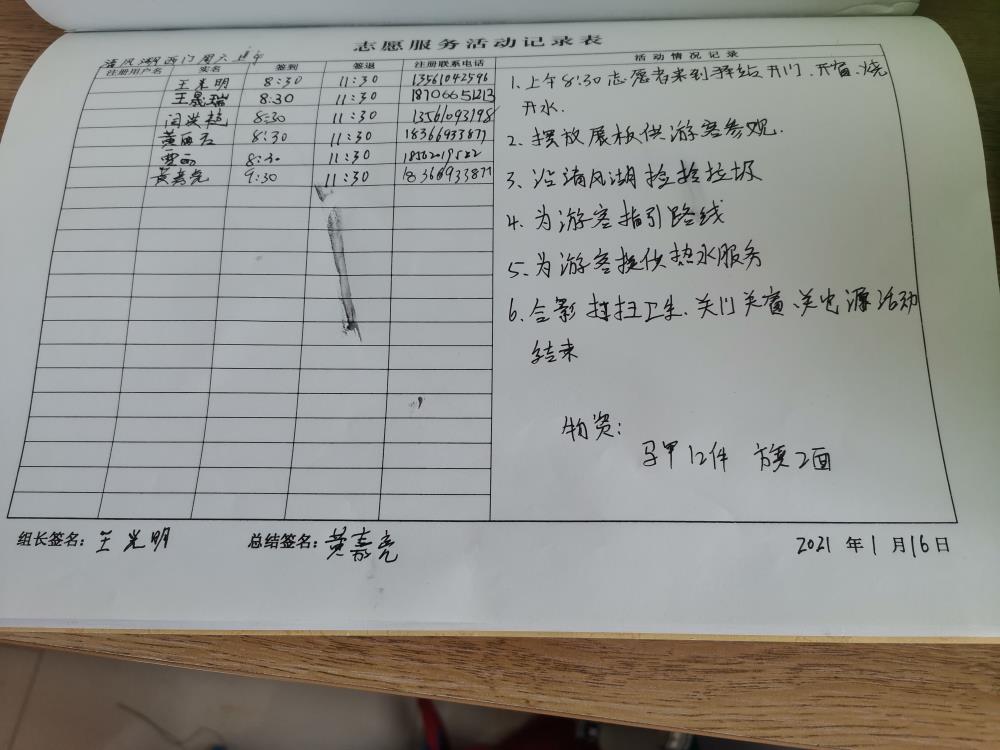 志愿服务活动记录表
清风湖西门周六上午
注册用户名 实名 签到 签退 注册联系电话
王光明 8:30 11:30 13561042596
王晟瑞 8:30 11:30 18706651213
闫洪艳 8:30 11:30 13561093198
黄丽君 8:30 11:30 18366933877
贾丽 8:30 11:30 18562019582
黄嘉亮 9:30 11:30 18366933877
活动情况记录
1、上午8:30志愿者来到驿站开门、开窗、烧
开水.
2、摆放展板供游客参观.
3、沿清风湖捡捡垃圾
4、为游客指引路线
5、为游客提供热水服务
6、合影 打扫卫生、关门关窗、关电源活动
结束
物资:
马甲12件 旗2面
组长签名: 王光明 总结签名: 黄嘉亮 2021年1月16日